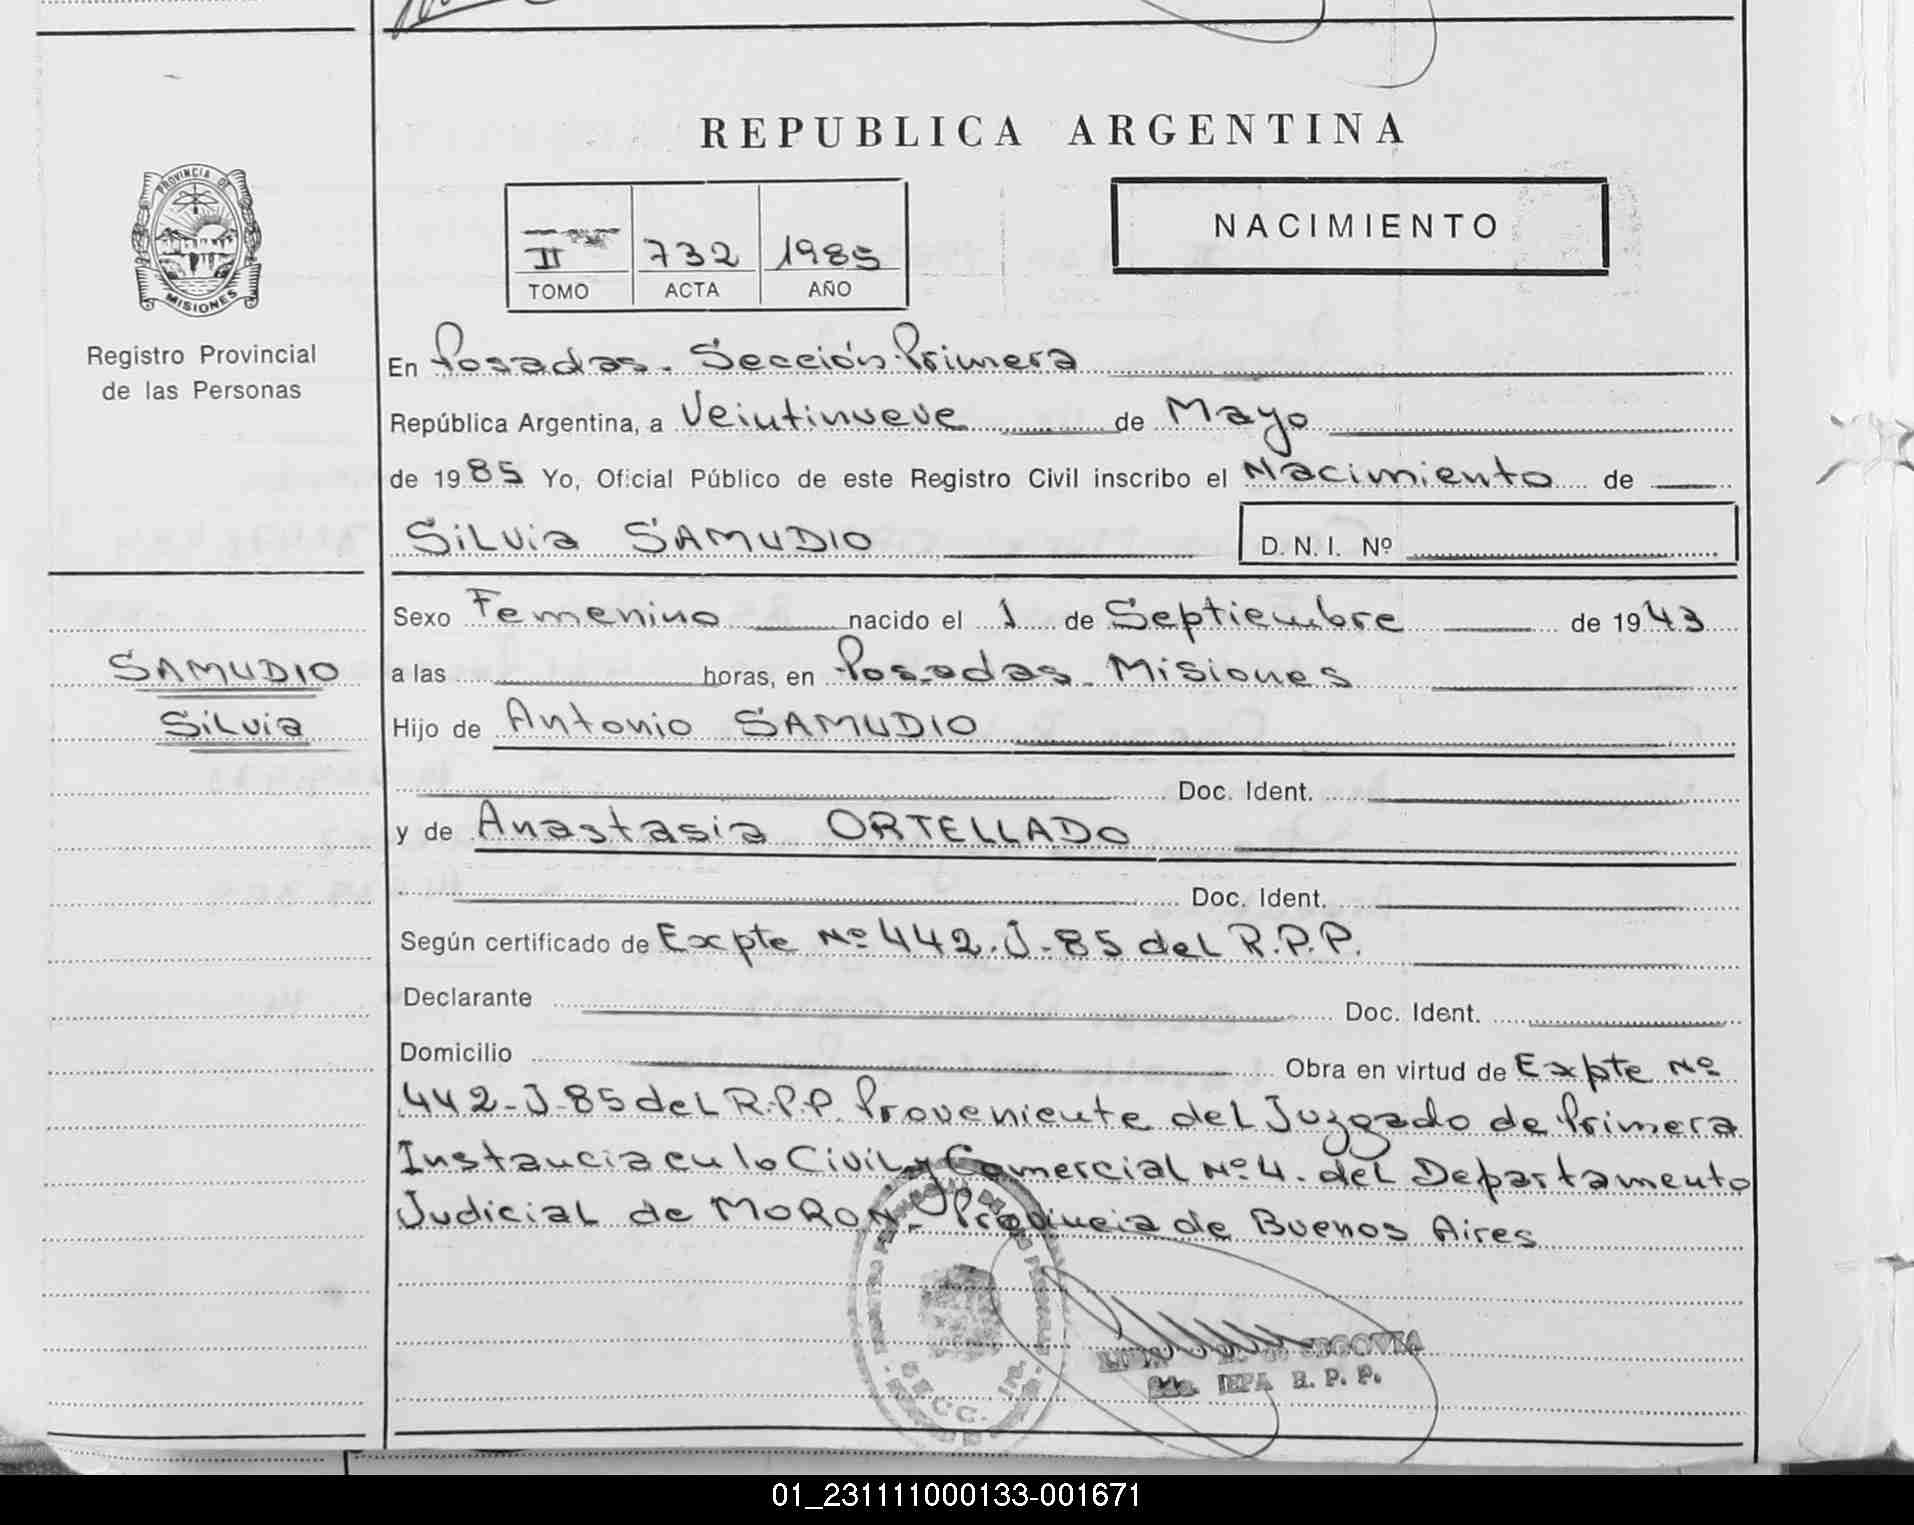 REPUBLICA ARGENTINA
PROVINCIA DE
MISIONES
Registro Provincial
de las Personas
II 732 1985
TOMO ACTA AÑO
NACIMIENTO
En Posadas. Sección Primera
República Argentina, a Veintinueve de Mayo
de 1985 Yo, Oficial Público de este Registro Civil inscribo el Nacimiento de
Silvia SAMUDIO D. N. I. Nº
Sexo Femenino nacido el 1 de Septiembre de 1943
SAMUDIO
Silvia
a las horas, en Posadas. Misiones
Hijo de Antonio SAMUDIO
Doc. Ident.
y de Anastasia ORTELLADO
Doc. Ident.
Según certificado de Expte Nº 442-J-85 del R.P.P.
Declarante Doc. Ident.
Domicilio Obra en virtud de Expte Nº
442-J-85 del R.P.P. Proveniente del Juzgado de Primera
Instancia en lo Civil y Comercial Nº 4. del Departamento
Judicial de MORON. Provincia de Buenos Aires
SEGOVIA
R. P. P.
SECC. 1ra.
01_231111000133-001671